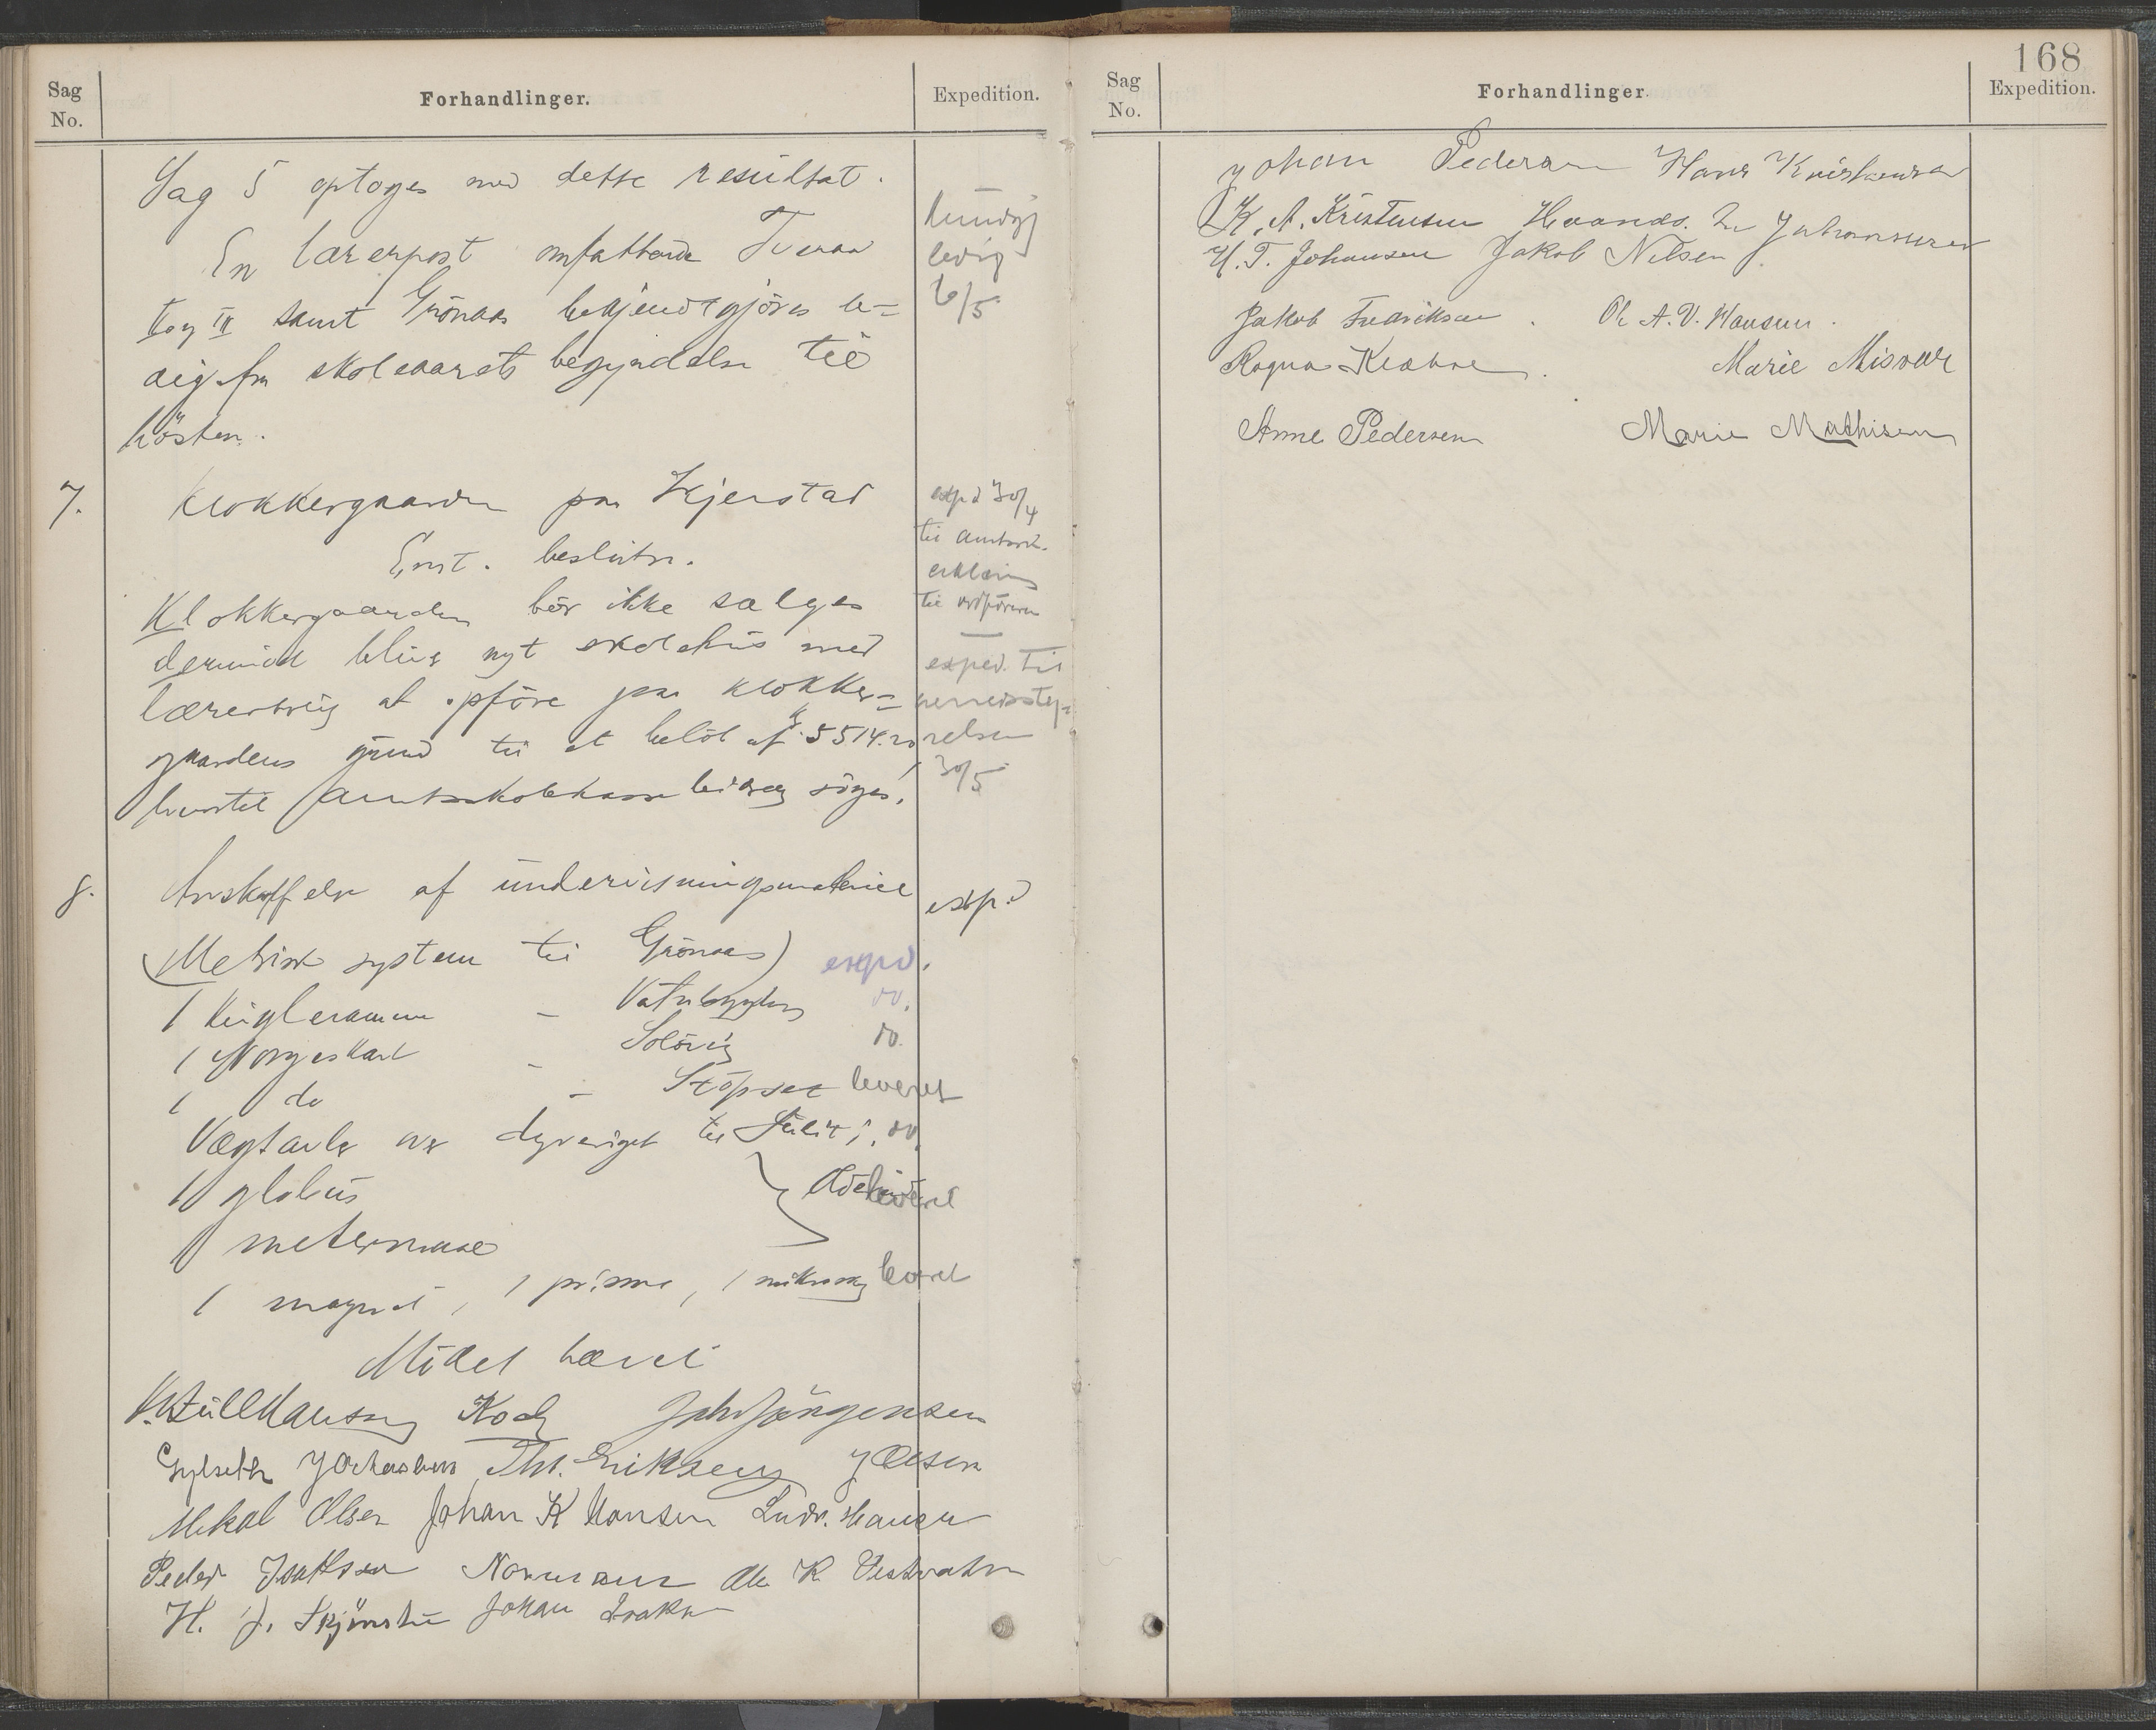 Sag
No.
Forhandlinger.
Expedition.
Sag 5 optoges med dette resultat.
En lærerpost omfattende Tveraa
tog III samt Grönaas bekjendtgjöres le-
dig fra skoleaarets begyndelse til
hösten.
kundgj
ledig
6/5
7.
Klokkergaarden paa Kjerstad
Enst. beslutn.
Klokkergaarden bör ikke sælges
derimod blir nyt skolehus med
lærerbolig at opföre paa klokker-
gaardens grund til et belöb af kr 5514.20
hvortil amtsskolekasse bidrag söges.
expd 30/4
til amtssk.
erklæring
til ordföreren
exped. til
herredssty-
relsen
30/5
8.
Anskaffelse af undervisningsmateriel
expd
(Metrisk system til Grönaas) expd.
1 Kugleramme - Vatnbygden do.
1 Norgeskart - Solövig do.
1 do - Stöpset leveret
Vægtavle over dyreriget til do.
1 globus
1 metermaal
leveret
1 magnet, 1 prisme, 1 mikroskop leveret
Mödet hævet
Koch Joh Jörgensen
Th. Eriksen J Olsen
Mikal Olsen Johan K Hansen Ludv. Hansen
Peder Normann Ole K Vestvatn
H. J. Johan Isaksen
168
Sag
No.
Forhandlinger.
Expedition.
Johan Pedersen Hans Kristensen
K. A. Kristensen
H. T. Johansen Jakob Nilsen
Jakob Fredriksen. Ole A. V. Hansen.
Ragna Marie Misvær
Anne Pedersen Marie Mathisen